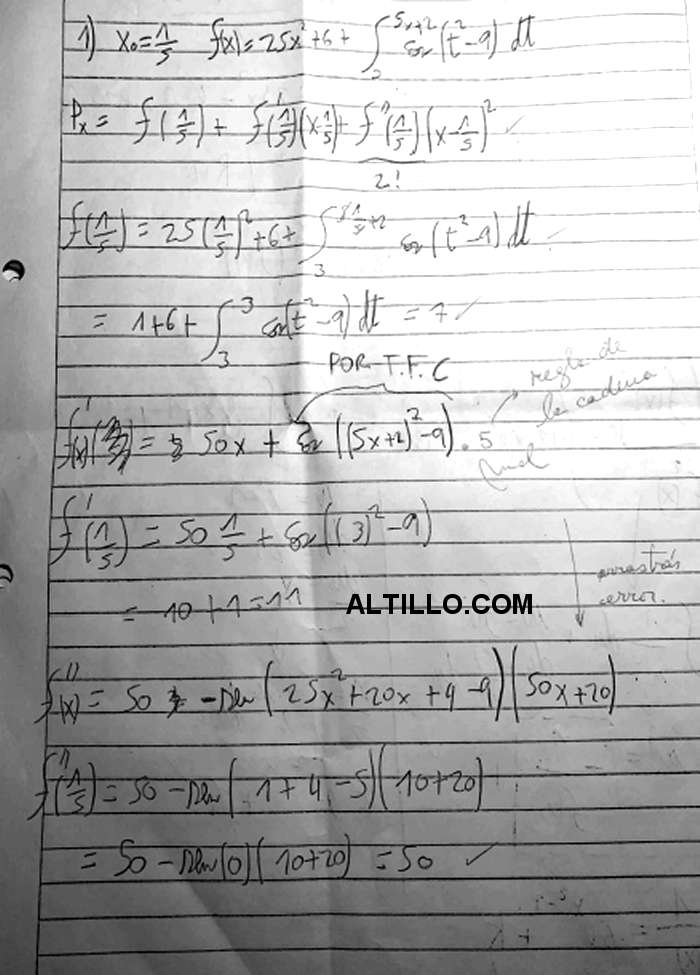 1) x₀=1/5 f(x)=25x²+6+ ∫₂^{5x+2} cos(t²-9) dt
Pₓ = f(1/5) + f'(1/5)(x-1/5) + f''(1/5)/2! (x-1/5)² ✓
f(1/5) = 25(1/5)²+6+ ∫₃^{5 1/5+2} cos(t²-9) dt
= 1+6+ ∫₃³ cos(t²-9) dt = 7 ✓
POR T.F.C
regla de
la cadena
f'(x) = 50x + cos((5x+2)²-9) . 5
f'(1/5) = 50 1/5 + cos((3)²-9)
arrastrás
error.
= 10+1=11
ALTILLO.COM
f''(x) = 50 -sen(25x²+20x+4-9)(50x+20)
f''(1/5) = 50 -sen(1+4-5)(10+20)
= 50 -sen(0)(10+20) = 50 ✓